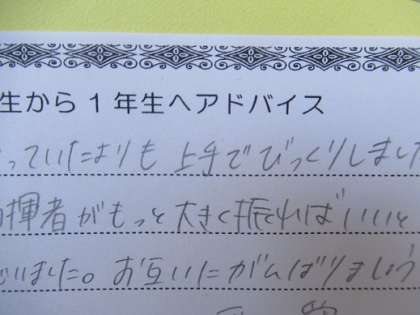 生から1年生へアドバイス
っていたよりも 上手でびっくりしました
指揮者がもっと大きく振ればいいと
いました。お互いにがんばりましょう